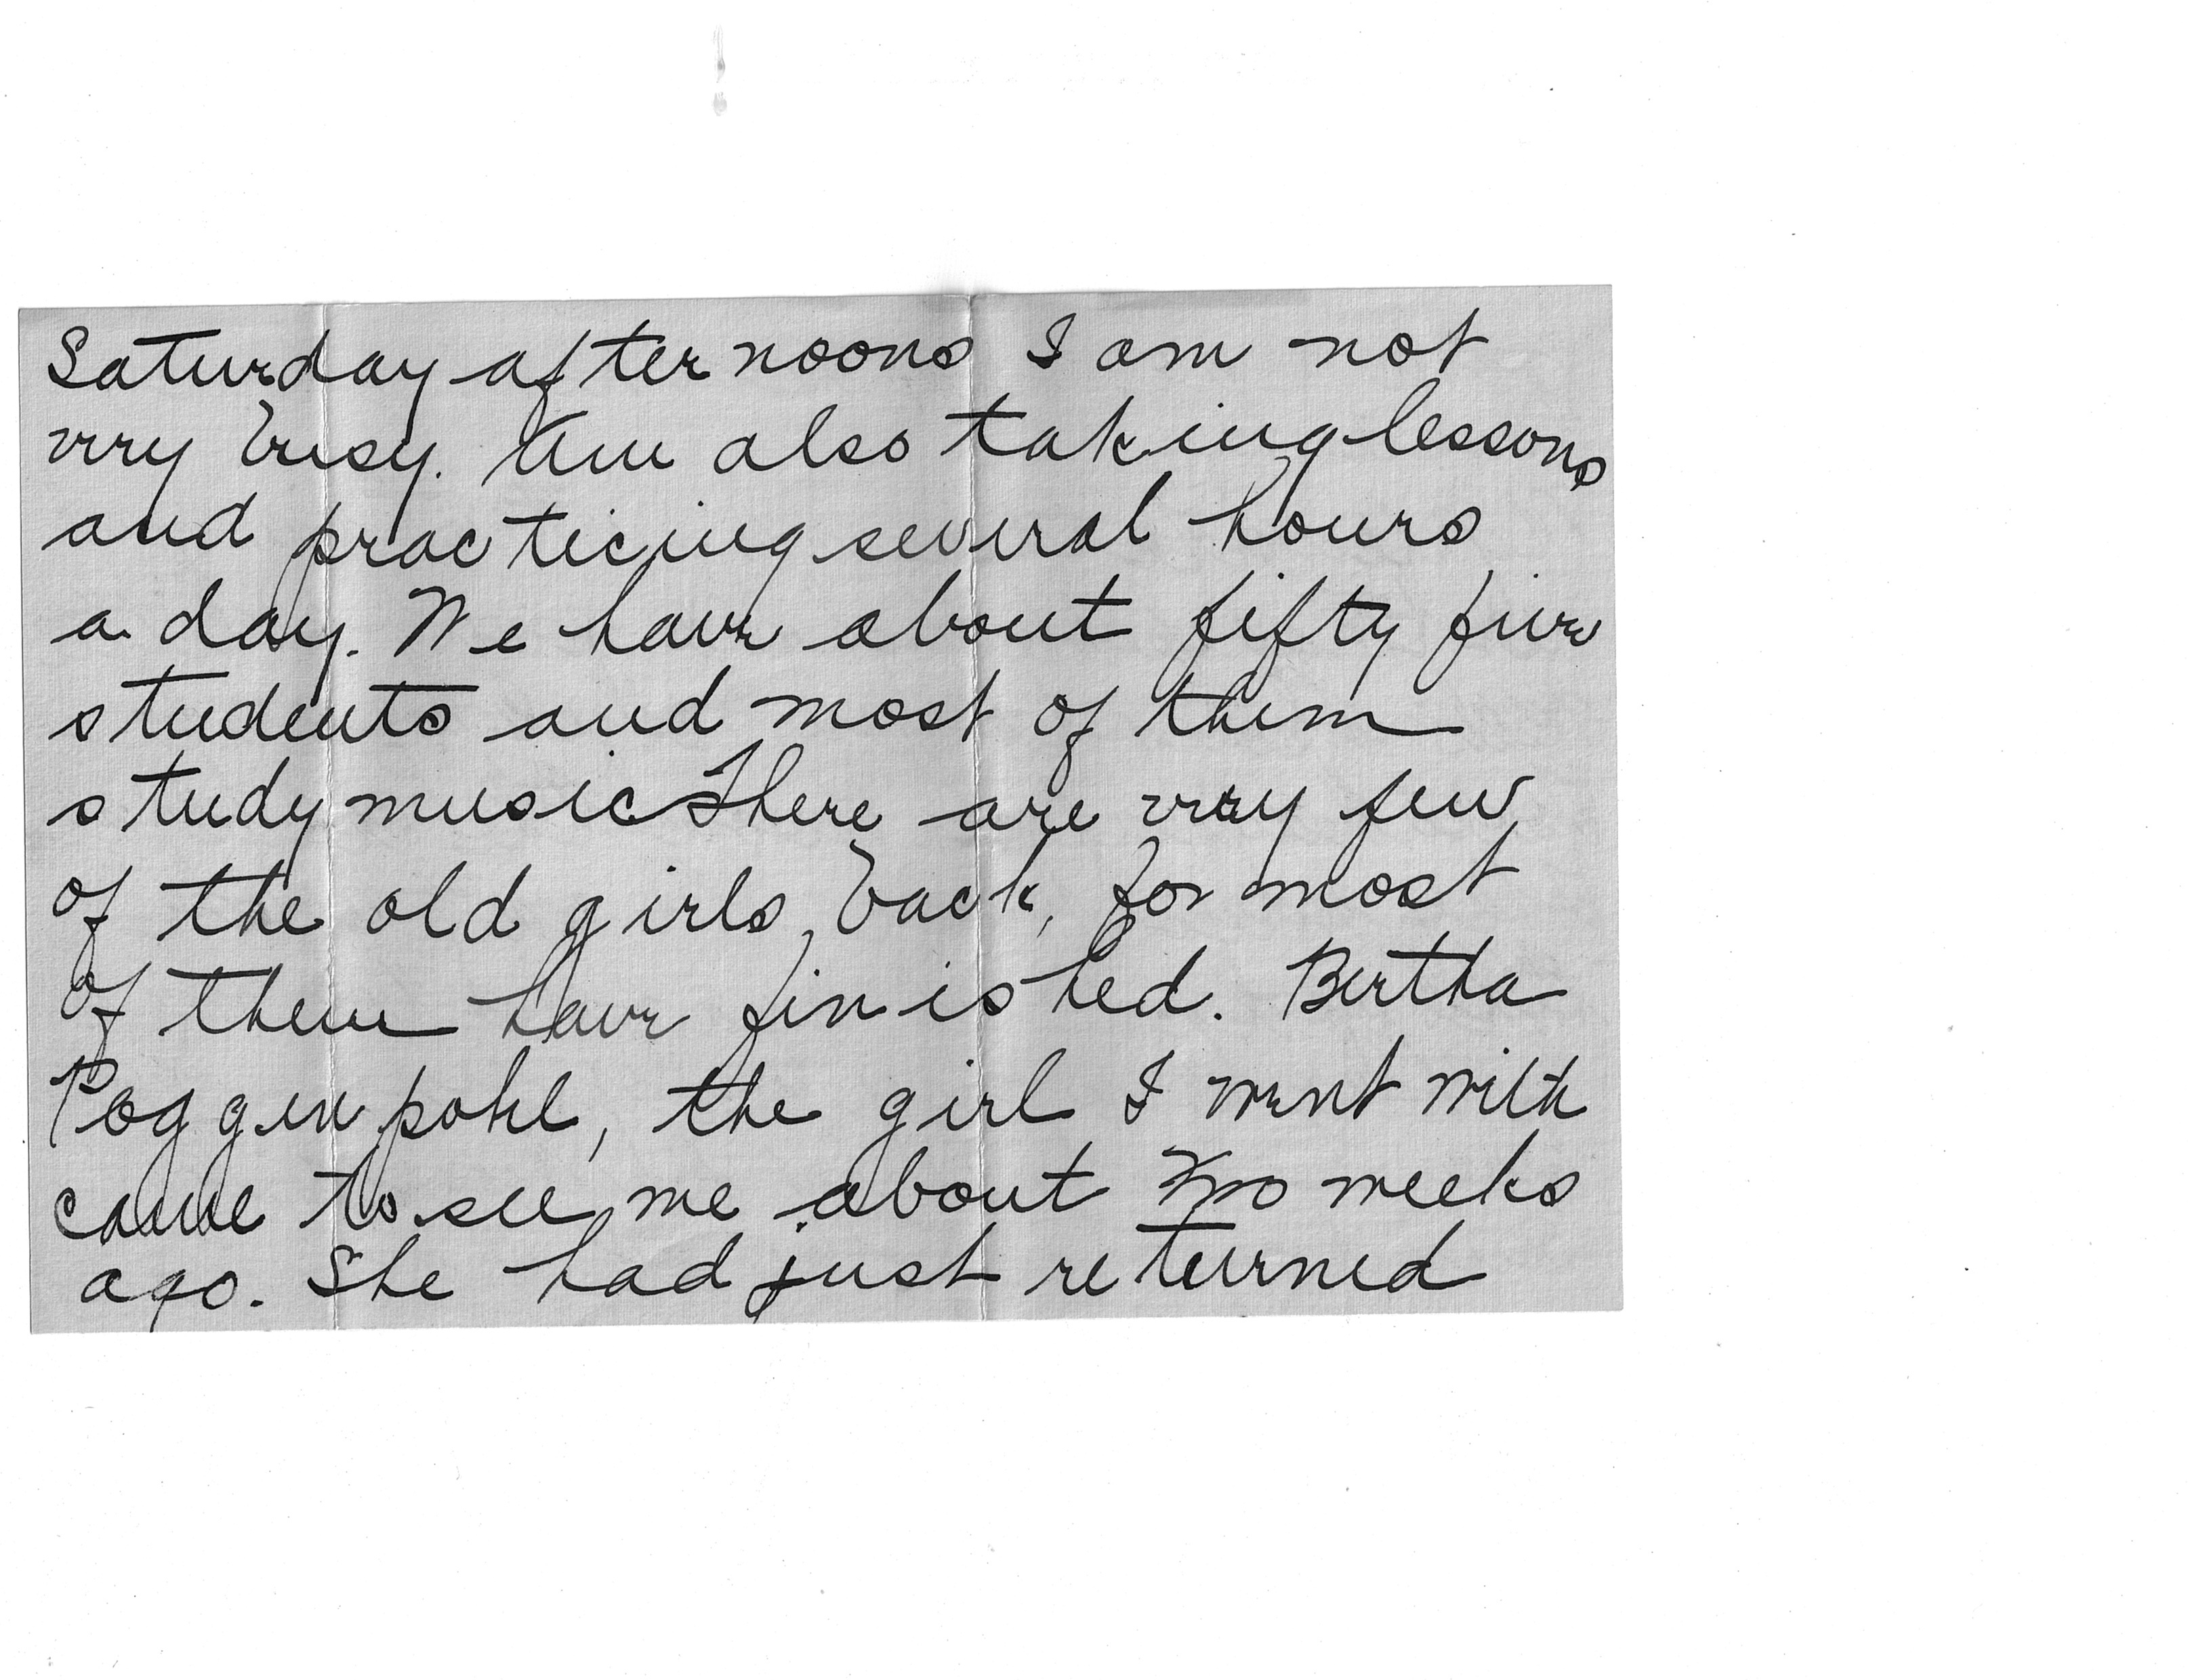 Saturday afternoons I am not
very busy. Am also taking lessons
and practicing several hours
a day. We have about fifty five
students and most of them
study music There are very few
of the old girls back, for most
of them have finished. Bertha
Poggenpohl, the girl I went with
came to see me about two weeks
ago. She had just returned